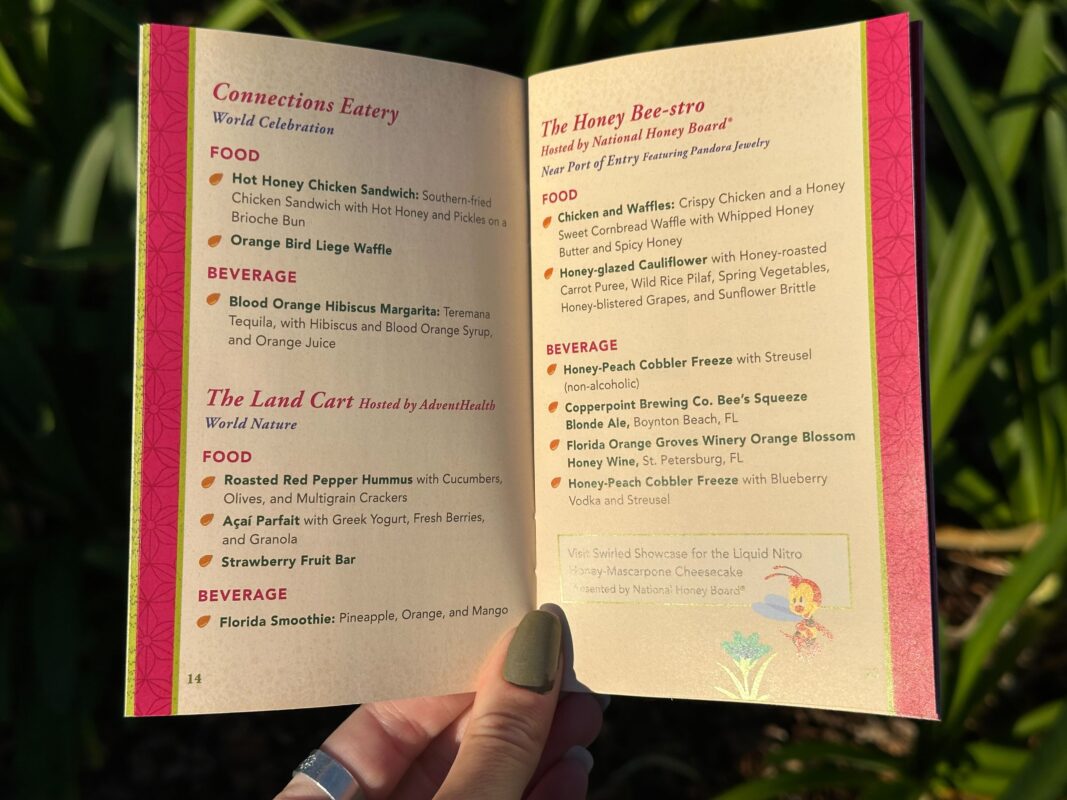 Connections Eatery
World Celebration
FOOD
Hot Honey Chicken Sandwich: Southern-fried
Chicken Sandwich with Hot Honey and Pickles on a
Brioche Bun
Orange Bird Liege Waffle
BEVERAGE
Blood Orange Hibiscus Margarita: Teremana
Tequila, with Hibiscus and Blood Orange Syrup,
and Orange Juice
The Land Cart Hosted by AdventHealth
World Nature
FOOD
Roasted Red Pepper Hummus with Cucumbers,
Olives, and Multigrain Crackers
Açaí Parfait with Greek Yogurt, Fresh Berries,
and Granola
Strawberry Fruit Bar
BEVERAGE
Florida Smoothie: Pineapple, Orange, and Mango
14
The Honey Bee-stro
Hosted by National Honey Board®
Near Port of Entry Featuring Pandora Jewelry
FOOD
Chicken and Waffles: Crispy Chicken and a Honey
Sweet Cornbread Waffle with Whipped Honey
Butter and Spicy Honey
Honey-glazed Cauliflower with Honey-roasted
Carrot Puree, Wild Rice Pilaf, Spring Vegetables,
Honey-blistered Grapes, and Sunflower Brittle
BEVERAGE
Honey-Peach Cobbler Freeze with Streusel
(non-alcoholic)
Copperpoint Brewing Co. Bee's Squeeze
Blonde Ale, Boynton Beach, FL
Florida Orange Groves Winery Orange Blossom
Honey Wine, St. Petersburg, FL
Honey-Peach Cobbler Freeze with Blueberry
Vodka and Streusel
Visit Swirled Showcase for the Liquid Nitro
Honey-Mascarpone Cheesecake
Presented by National Honey Board®